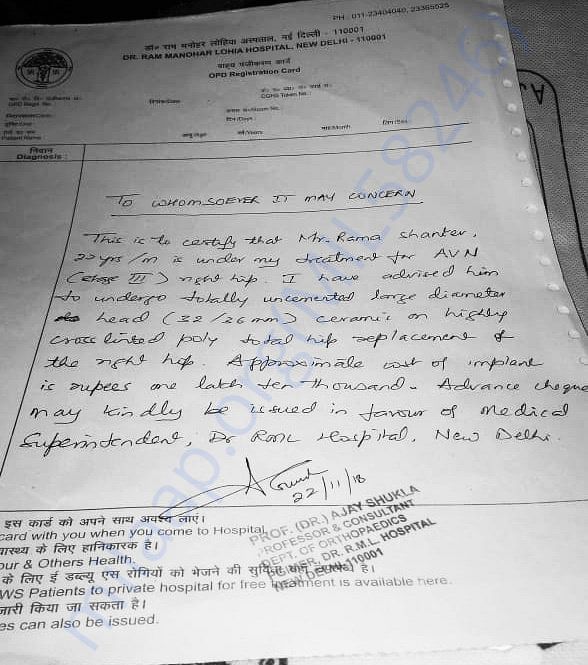 PH : 011-23404040, 23365525
डॉ० राम मनोहर लोहिया अस्पताल, नई दिल्ली - 110001
DR. RAM MANOHAR LOHIA HOSPITAL, NEW DELHI - 110001
बाह्य पंजीकरण कार्ड
OPD Registration Card
CGHS Token No.:
OPD Regn. No.
दिन/Days :
Patient Name
आयु/Age
वर्ष/Years
माह/Month
लिंग/Sex :
निदान
Diagnosis :
TO WHOMSOEVER IT MAY CONCERN
This is to certify that Mr. Rama Shanker,
22 yrs/m is under my treatment for AVN
(stage III) right hip. I have advised him
to undergo totally uncemented large diameter
head (32/36 mm) ceramic on highly
cross linked poly total hip replacement of
the right hip. Approximate cost of implant
is rupees one lakh ten thousand. Advance cheque
may kindly be issued in favour of Medical
Superintendent, Dr RML Hospital, New Delhi.
22/11/18
PROF. (DR.) AJAY SHUKLA
PROFESSOR & CONSULTANT
DEPT. OF ORTHOPAEDICS
PGIMER, DR. R.M.L. HOSPITAL
NEW DELHI-110001
इस कार्ड को अपने साथ अवश्य लाएं।
card with you when you come to Hospital
स्वास्थ्य के लिए हानिकारक है।
our & Others Health.
के लिए ई डब्ल्यू एस रोगियों को भेजने की सुविधा यहां उपलब्ध है।
WS Patients to private hospital for free treatment is available here.
जारी किया जा सकता है।
es can also be issued.